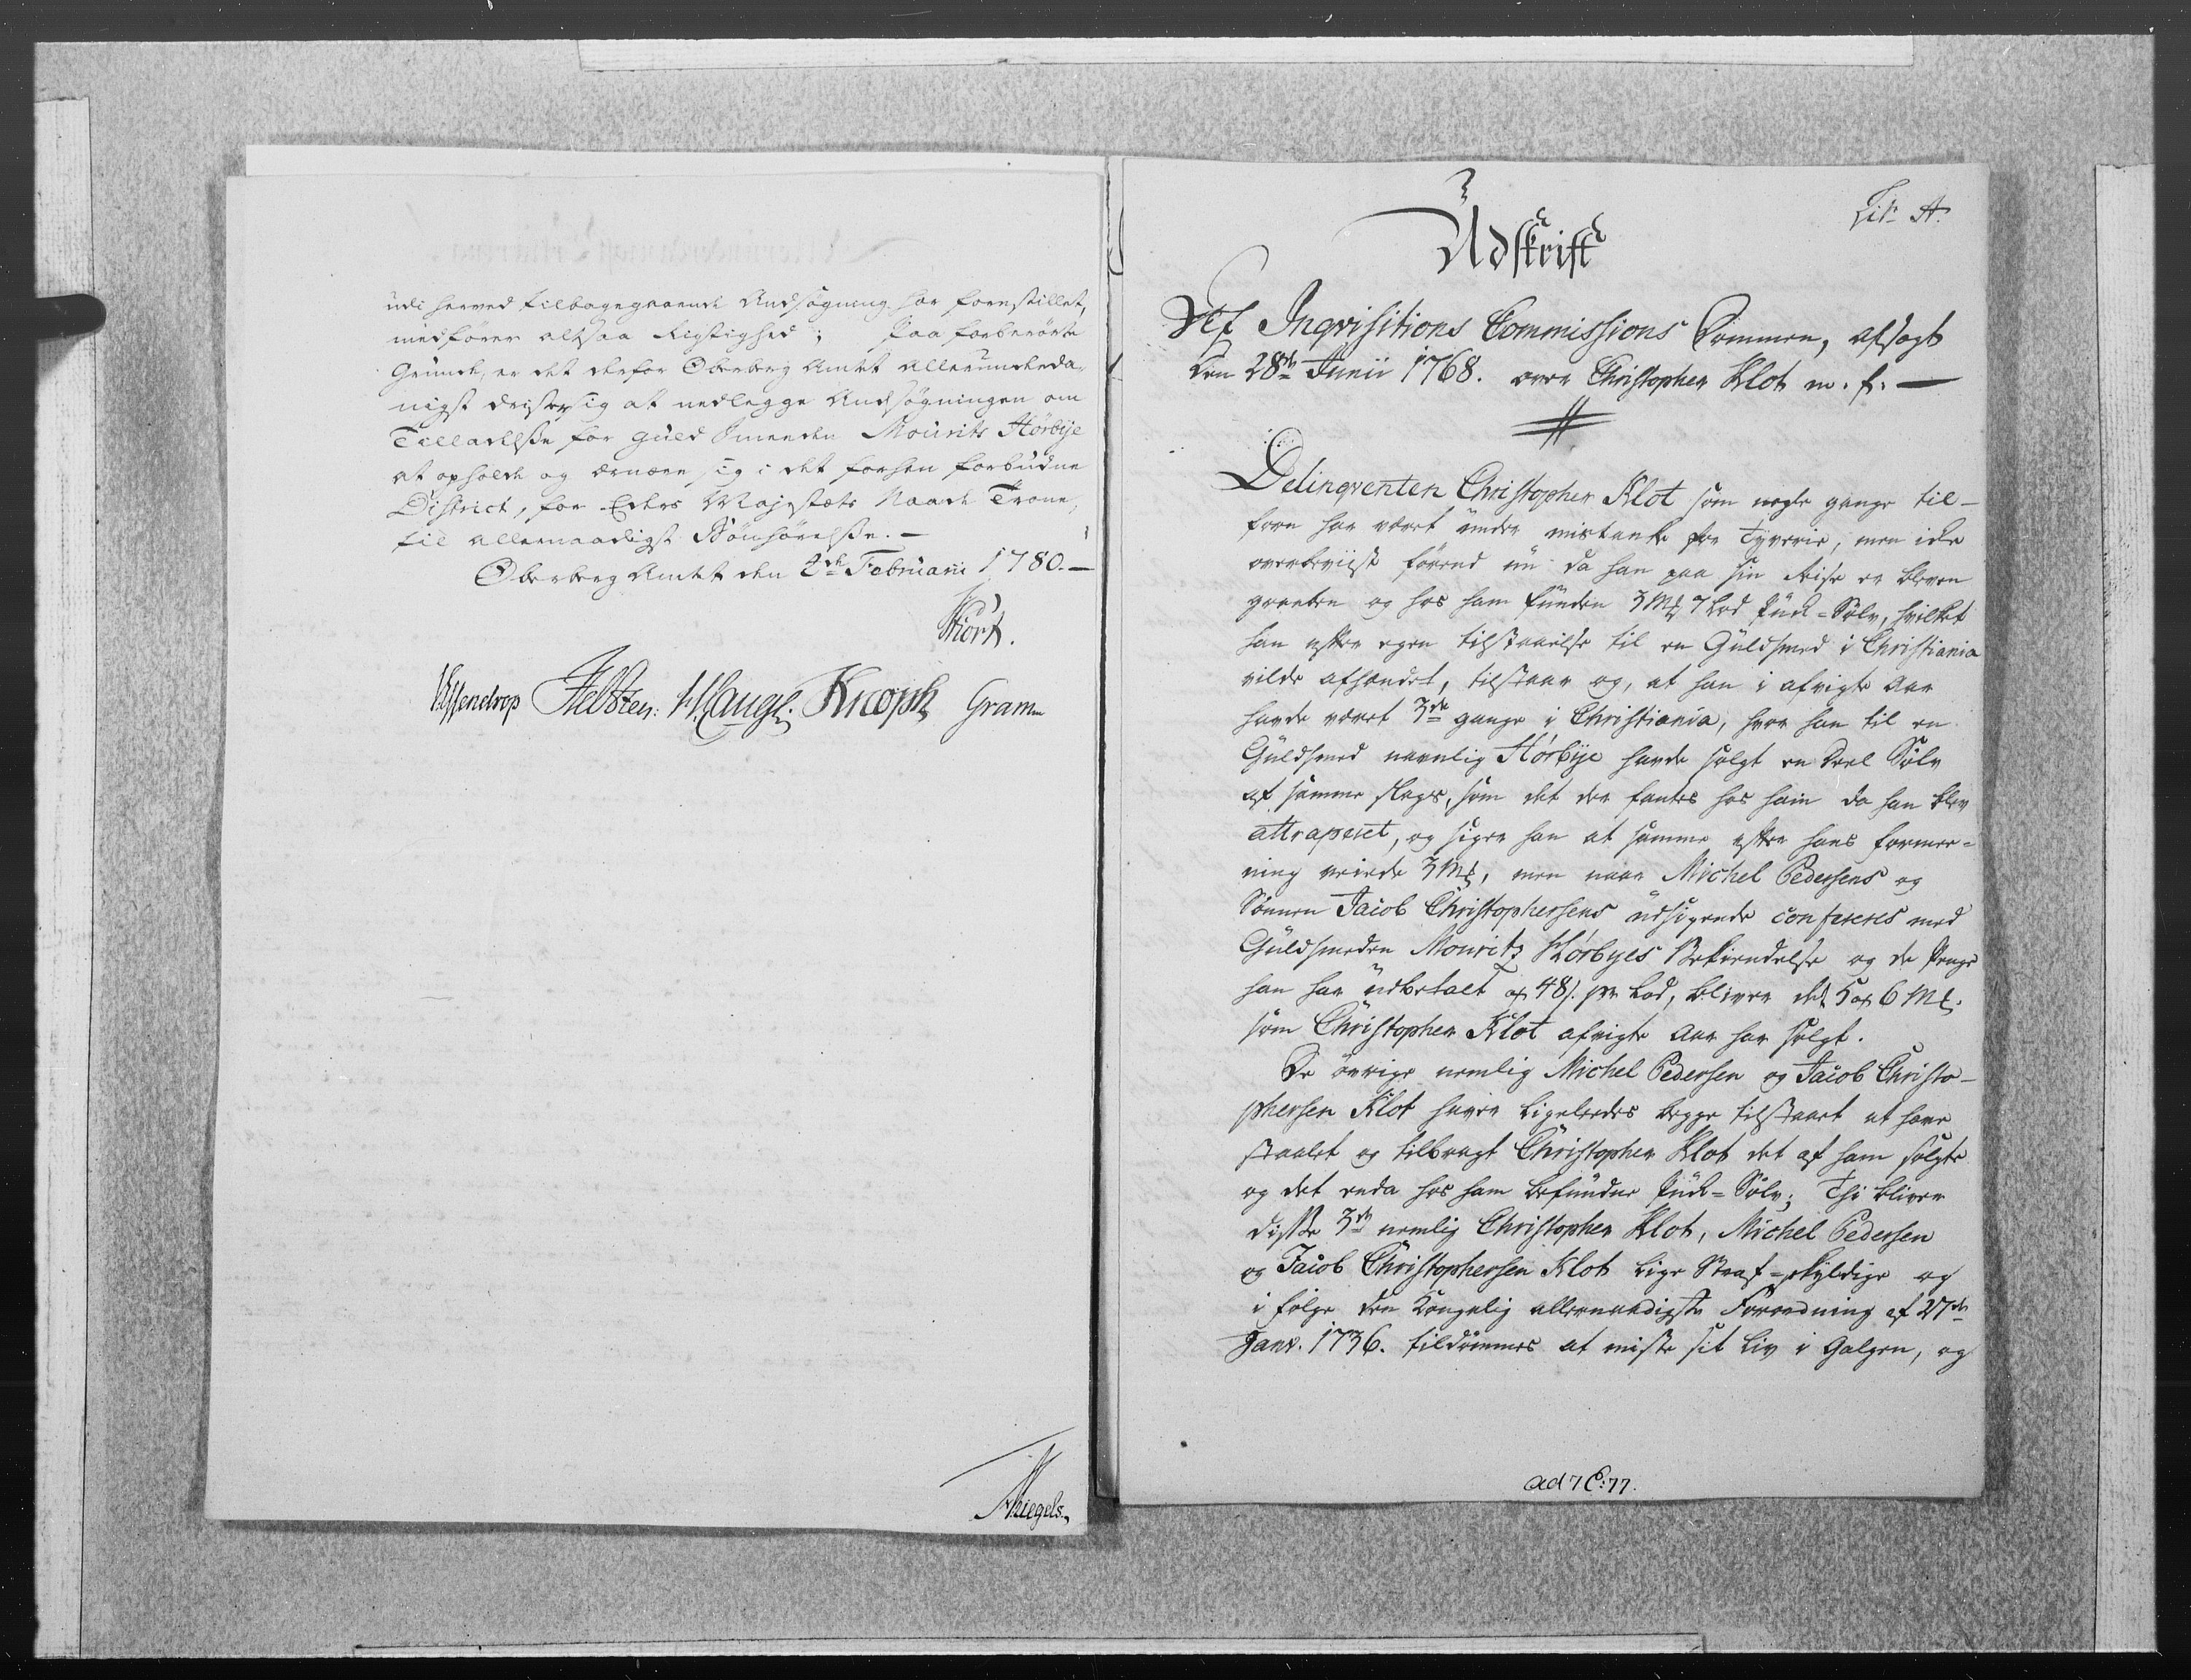 udi herved tilbagegaaende Ansøgning har forestillet,
medfører altsaa Rigtighed; paa forberørte
Grunde, er det derfor Oberberg Amtet allerunderda-
nigst drister sig at nedlegge Ansøgningen om
Tilladelse for Guldsmeden Mourits Hørbye
at opholde og ernære sig i det forhen forbudne
District, for Eders Majestæts Naade Trone,
til allernaadigst Bønhørelse. —
Oberberg Amtet den 2de Februarii 1780. —
Hiort.
Essendrop Heltzen. Knoph Gram
Lit. A.
Udskrift
Af Inqvisitions Commissions Dommen, afsagt
den 28de Junii 1768. over Christopher Klot m. fl. —
Delinqventen Christopher Klot som nogle gange til-
forn har været under mistanke for Tyverie, men icke
overbeviist førend nu da han paa sin Reise er bleven
greeben og hos ham funden 3 Mk 7 Lod Puck-Sølv, hvilket
han efter egen tilstaaelse til en Guldsmed i Christiania
vilde afhændet, tilstaar og, at han i afvigte Aar
havde været 3de gange i Christiania, hvor han til en
Guldsmed navnlig Hørbye havde solgt en Deel Sølv
af samme slags, som det der fantes hos ham da han blev
attraperet, og siger han at samme efter hans formee-
ning veiede 3 Mk, men naar Michel Pedersens og
Sønnen Jacob Christophersens udsigende confereres med
Guldsmeden Mouritz Hørbyes Bekiendelse og de Penge
han har udbetalt a 48 s. pr Lod, bliver det 5 a 6 Mk.
som Christopher Klot afvigte Aar har solgt.
De øvrige nemlig Michel Pedersen og Jacob Christo-
phersen Klot haver ligeledes begge tilstaaet at have
staalet og tilbragt Christopher Klot det af ham solgte
og det enda hos ham befundne Puck-Sølv; Thi bliver
disse 3de nemlig Christopher Klot, Michel Pedersen
og Jacob Christophersen Klot lige Straf-skyldige og
i følge den Kongelig allernaadigste Forordning af 27de
Janv. 1736. tildømmes at miste sit Liv i Galgen, og
ad 7 C: 77.